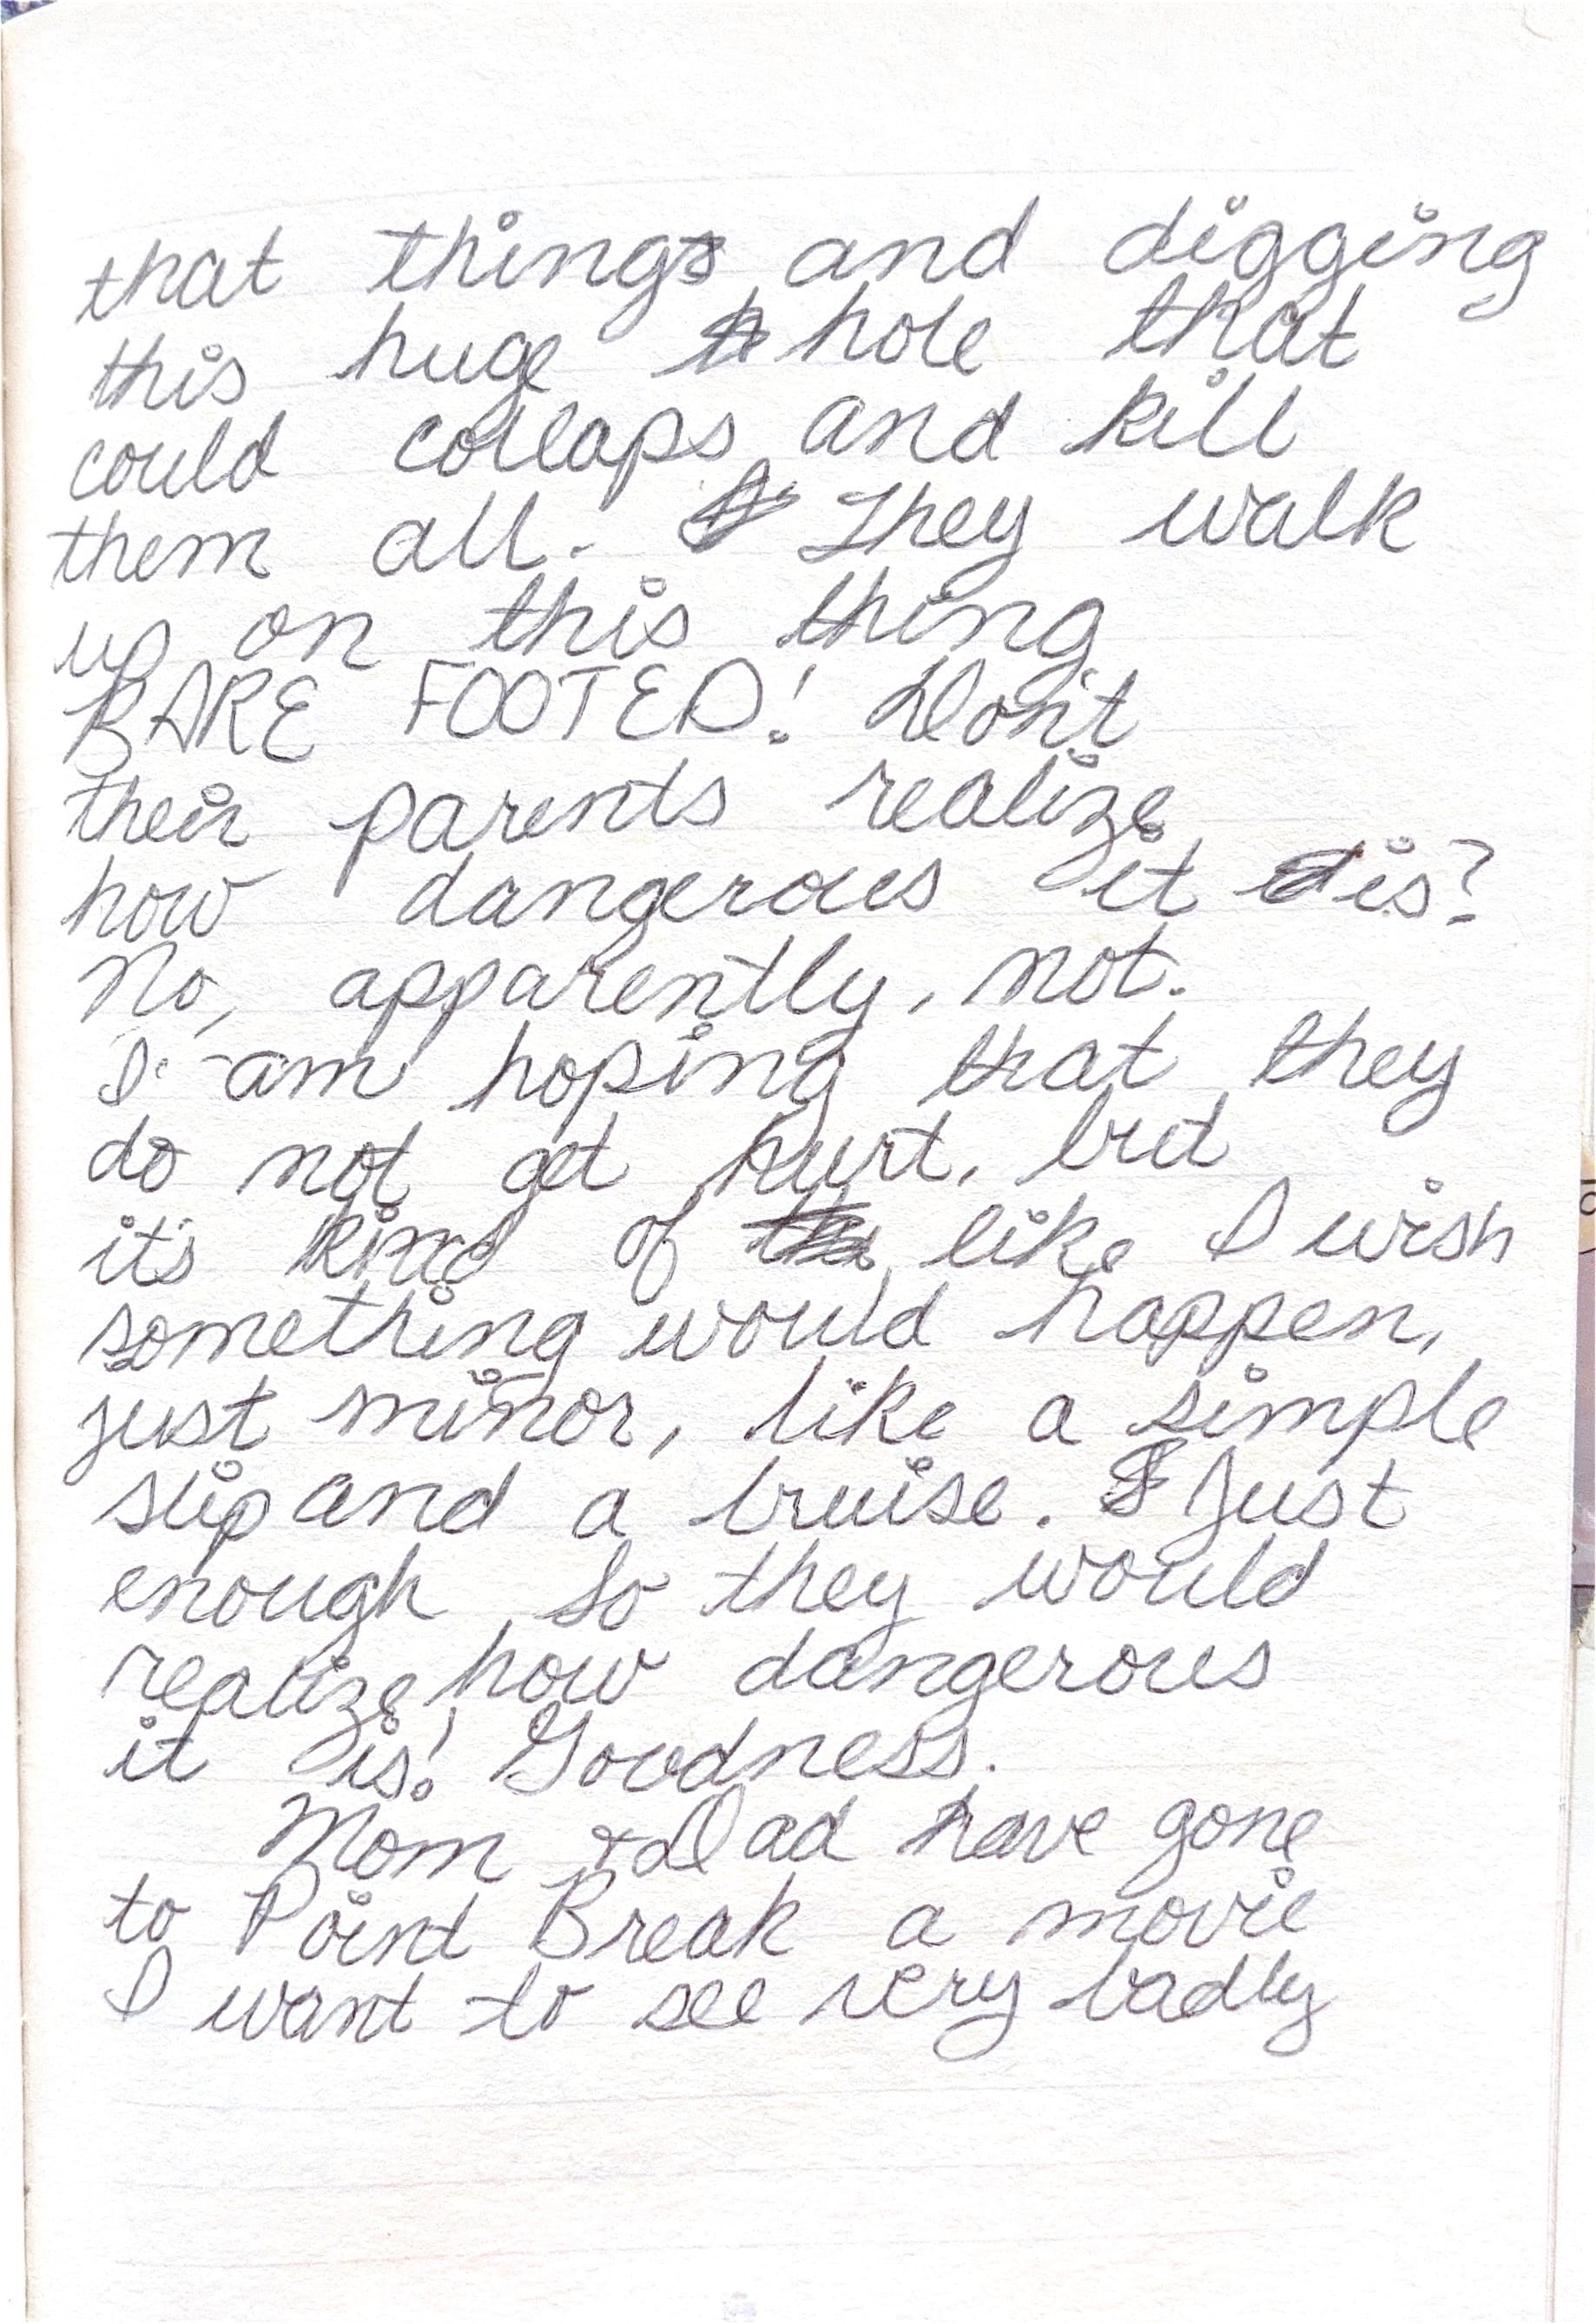 that things and digging
this huge hole that
could collaps and kill
them all. They walk
up on this thing
BARE FOOTED! Don't
their parents realize
how dangerous it is?
No, apparently, not.
I am hoping that they
do not get hurt, but
it's kind of like I wish
something would happen,
just minor, like a simple
slip and a bruise. Just
enough so they would
realize how dangerous
it is! Goodness.
Mom & Dad have gone
to Point Break a movie
I want to see very badly